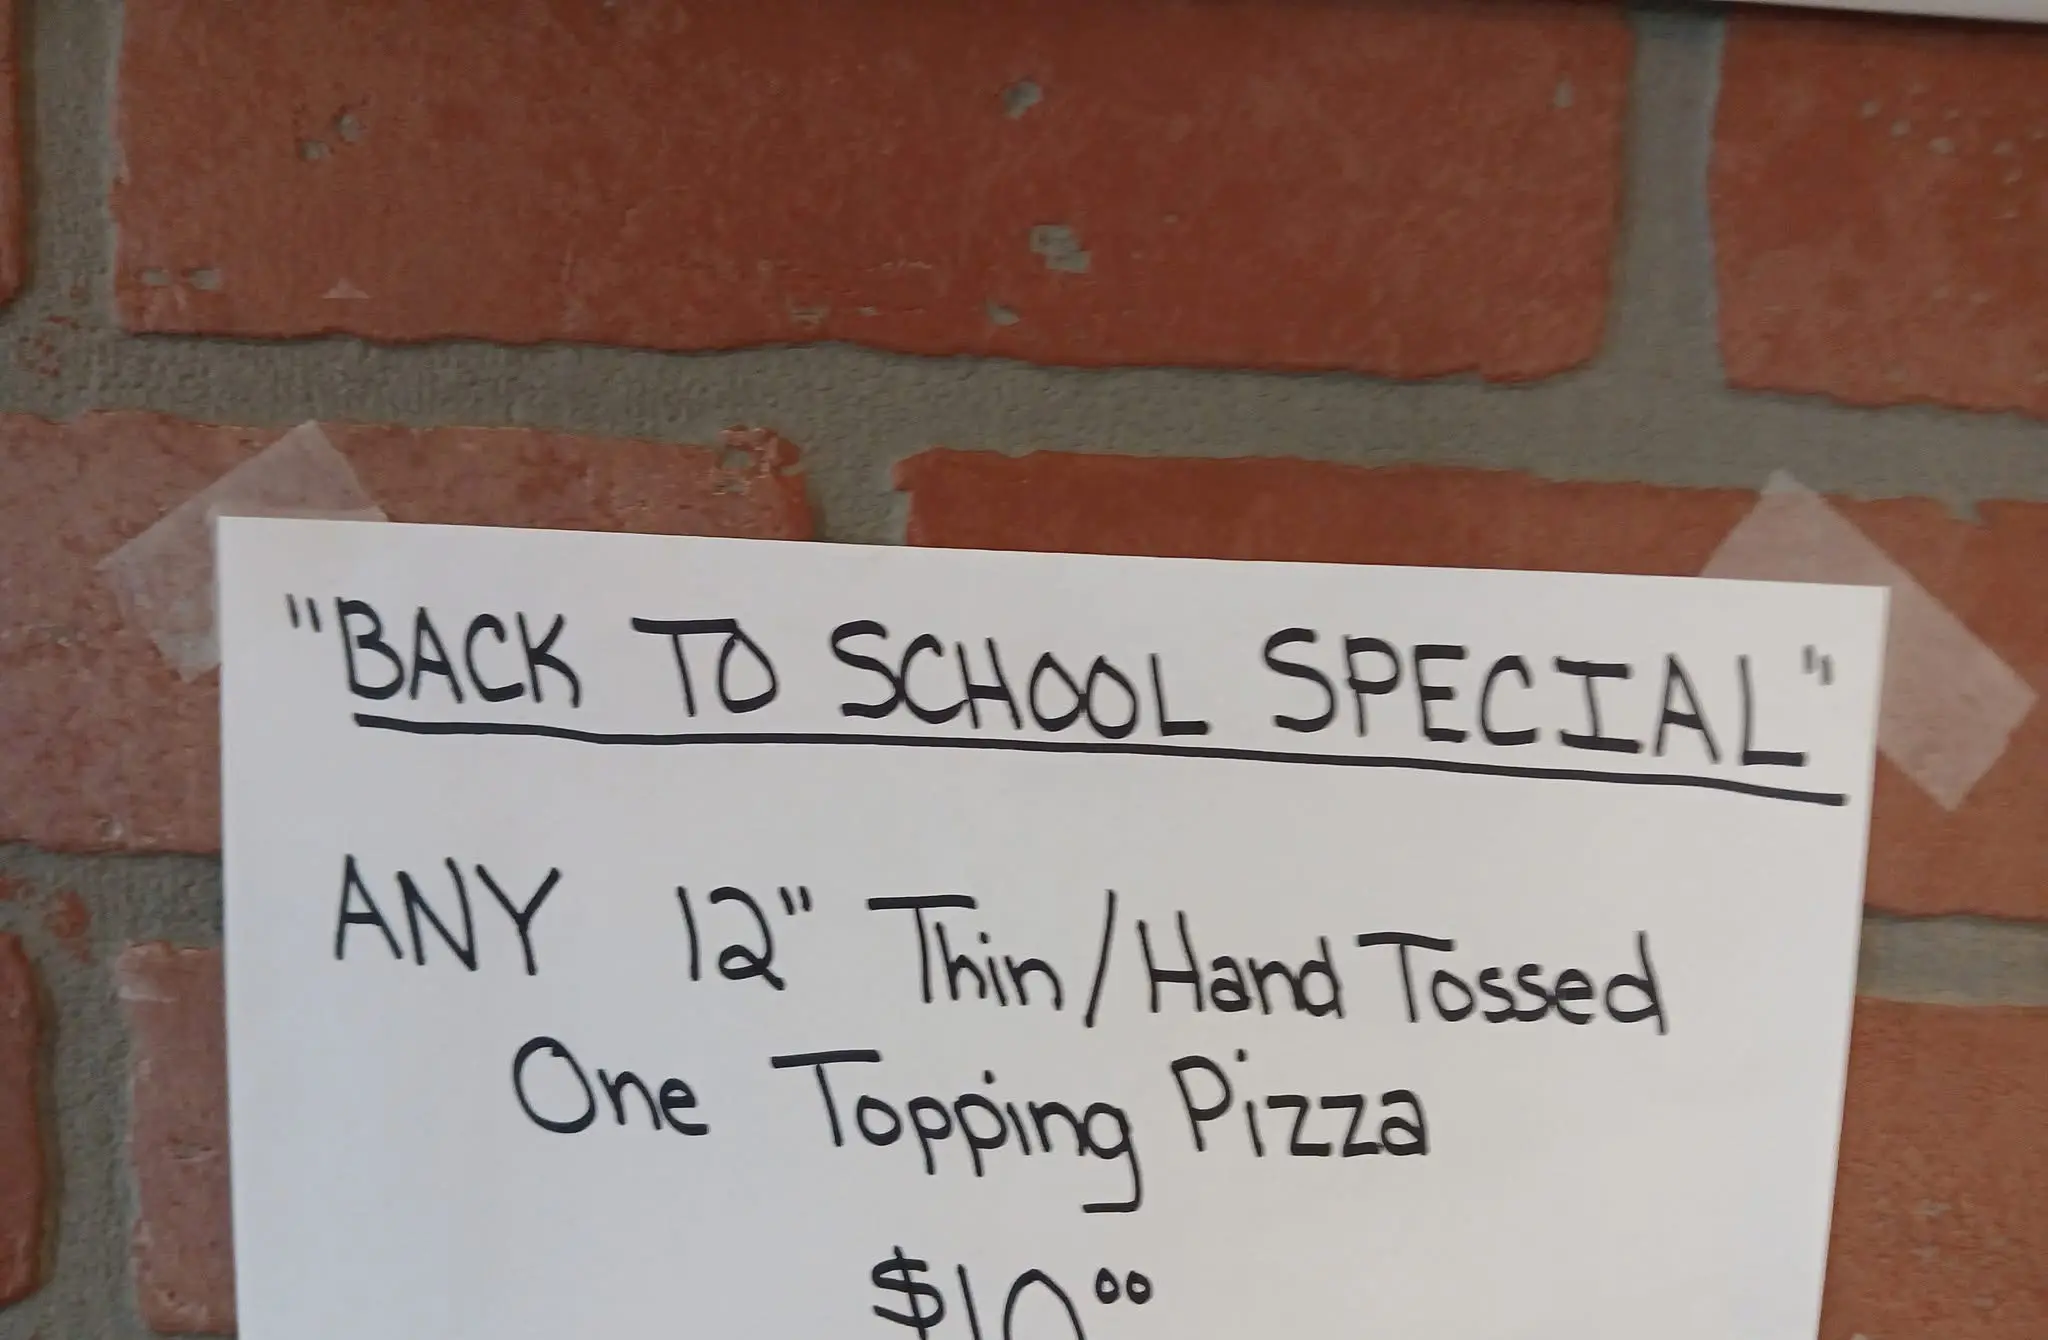 "BACK TO SCHOOL SPECIAL"
ANY 12" Thin/Hand Tossed
One Topping Pizza
$10⁰⁰